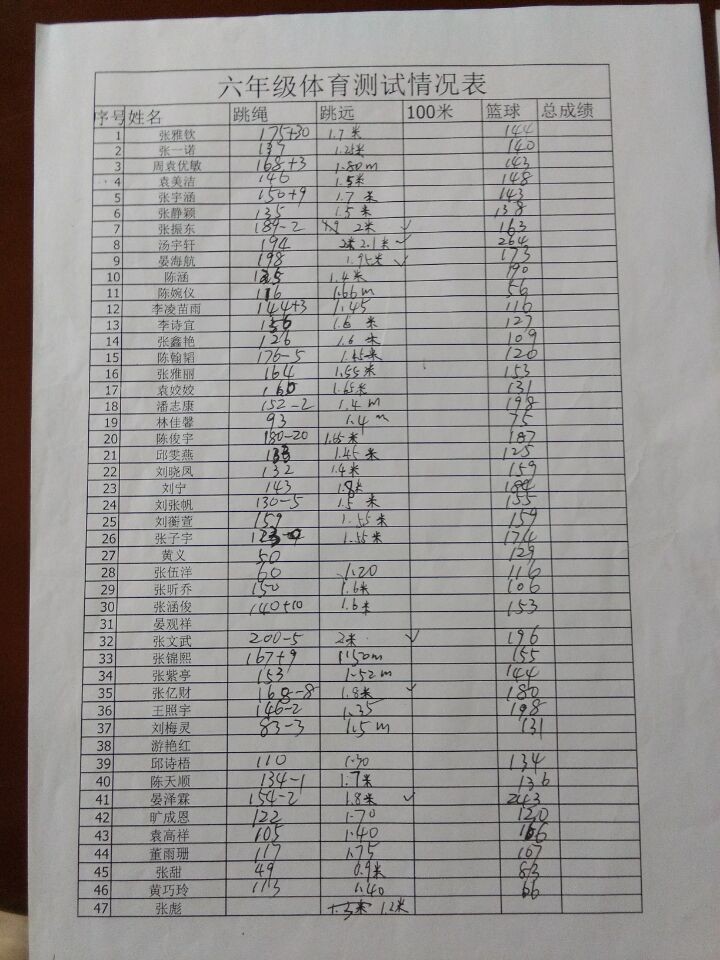 六年级体育测试情况表
序号 姓名 跳绳 跳远 100米 篮球 总成绩
1 张雅钦 175+30 1.7米 144
2 张一诺 137 1.25米 140
3 周袁优敏 168+3 1.80m 143
4 袁美洁 146 1.5米 148
5 张宇涵 150+9 1.7米 143
6 张静颖 135 1.5米 138
7 张振东 189-2 2米 ✓ 163
8 汤宇轩 194 2.1米 ✓ 264
9 晏海航 198 1.95米 ✓ 173
10 陈涵 125 1.4米 190
11 陈婉仪 116 1.66m 56
12 李凌苗雨 144+3 1.45 116
13 李诗宜 136 1.6米 127
14 张鑫艳 126 1.6米 109
15 陈翰韬 176-5 1.45米 120
16 张雅丽 164 1.55米 153
17 袁姣姣 160 1.65米 131
18 潘志康 152-2 1.4m 198
19 林佳馨 93 1.4m 75
20 陈俊宇 180-20 1.65米 187
21 邱雯燕 133 1.45米 125
22 刘晓凤 132 1.4米 159
23 刘宁 143 1.8米 184
24 刘张帆 130-5 1.5米 155
25 刘蘅萱 159 1.55米 159
26 张子宇 1.55米 174
27 黄义 50 129
28 张伍洋 60 1.20 116
29 张昕乔 150 1.6米 106
30 张涵俊 140+10 1.6米 153
31 晏观祥
32 张文武 200-5 2米 ✓ 196
33 张锦熙 167+9 1.50m 155
34 张紫亭 153 1.52m 144
35 张亿财 168-8 1.8米 ✓ 180
36 王照宇 146-2 1.35 198
37 刘梅灵 83-3 1.5m 131
38 游艳红
39 邱诗梧 110 1.30 134
40 陈天顺 134-1 1.7米 136
41 晏泽霖 154-2 1.8米 ✓ 243
42 旷成恩 122 1.70 120
43 袁高祥 105 1.40 166
44 董雨珊 117 1.75 107
45 张甜 49 0.9米 83
46 黄巧玲 113 1.40 66
47 张彪 1.3米 1.2米